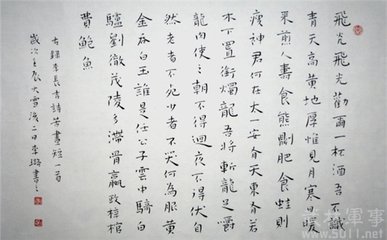 飛光飛光勸爾一杯酒吾不識
青天高黃地厚惟見月寒日暖
來煎人壽食熊則肥食蛙則
瘦神君何在太一安有天東有若
木下置銜燭龍吾將斬龍足嚼
龍肉使之朝不得迴夜不得伏自
然老者不死少者不哭何為服黃
金吞白玉誰是任公子雲中騎白
驢劉徹茂陵多滯骨嬴政梓棺
費鮑魚
右録李長吉詩苦晝短一首
歲次壬辰大雪後二日李璐書之